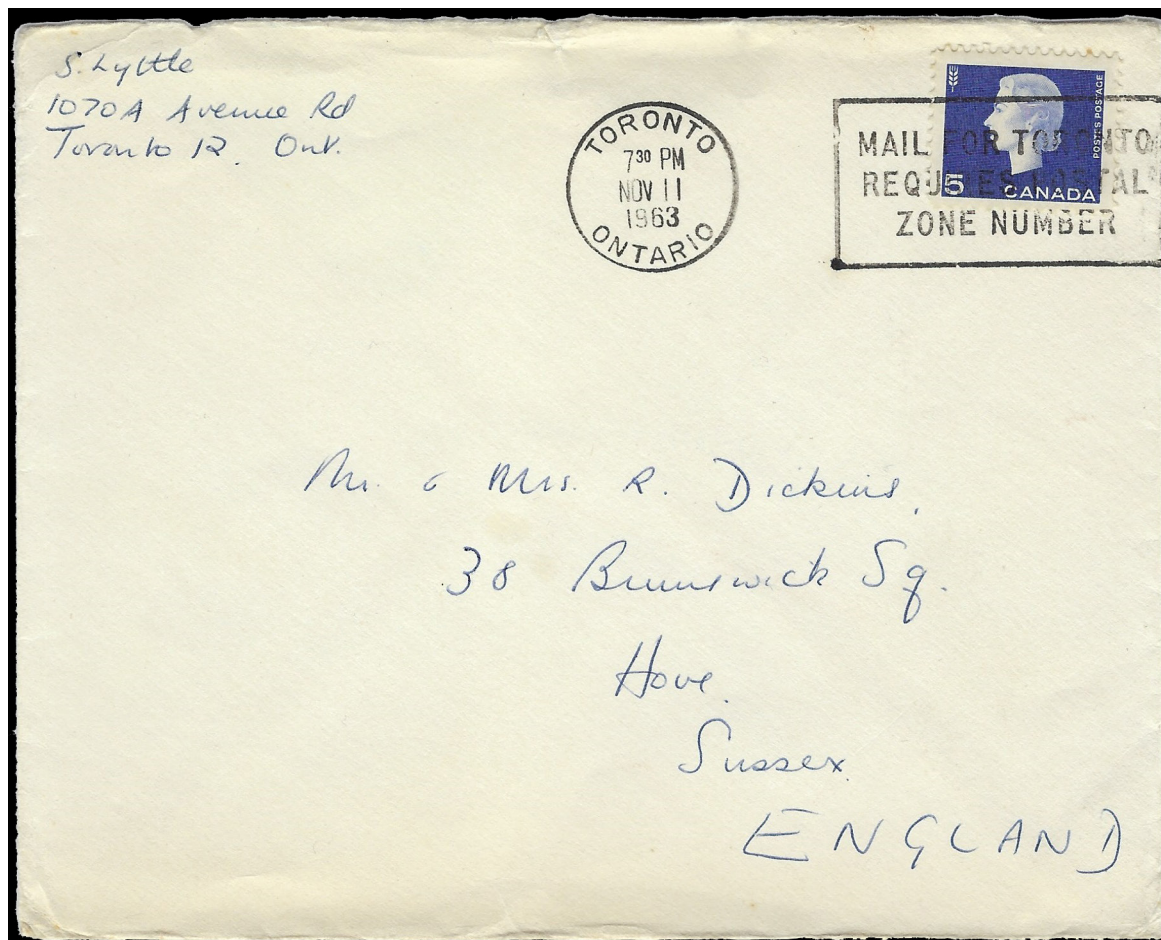 S. Lyttle
1070A Avenue Rd
Toronto 12, Ont.
TORONTO
7³⁰ PM
NOV 11
1963
ONTARIO
MAIL FOR TORONTO
REQUIRES POSTAL
ZONE NUMBER
POSTES POSTAGE
5 CANADA
Mr. & Mrs. R. Dickins,
38 Brunswick Sq.
Hove.
Sussex
ENGLAND